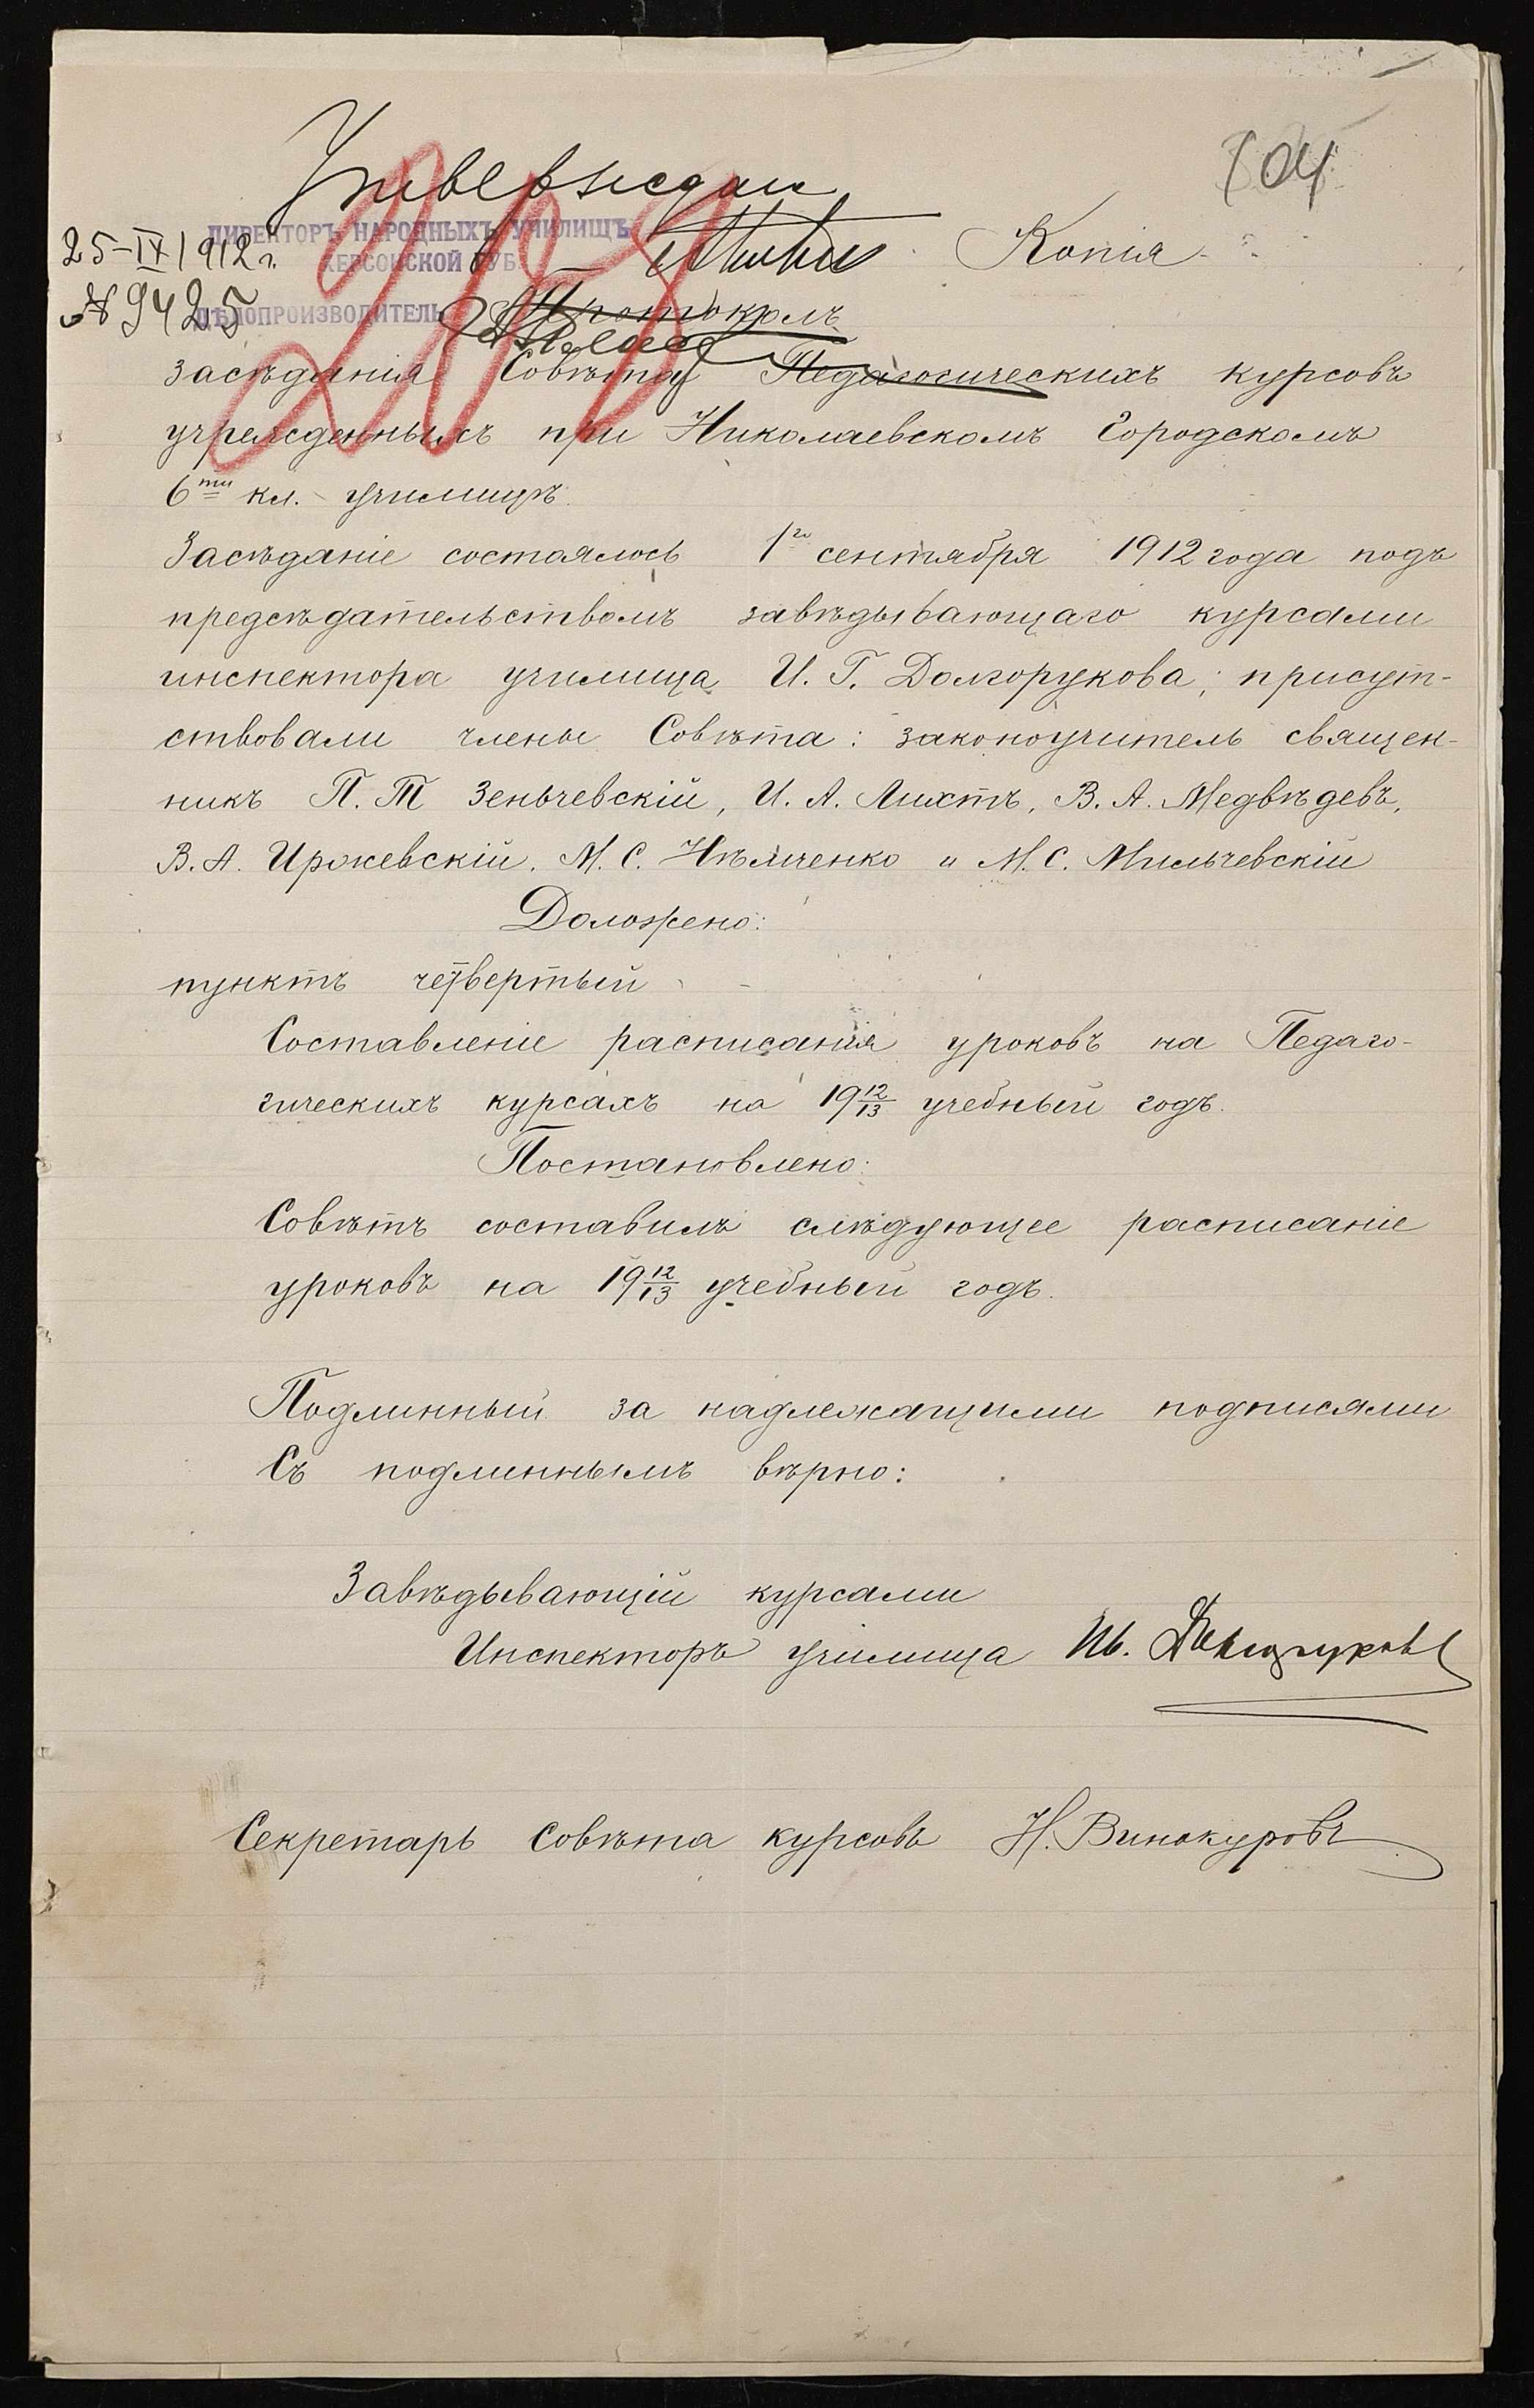 104
Утверждаю
ДИРЕКТОРЪ НАРОДНЫХЪ УЧИЛИЩЪ
25-IX 1912 г.
ХЕРСОНСКОЙ ГУБ.
Копія
№ 9425
ДѢЛОПРОИЗВОДИТЕЛЬ
Протоколъ
засѣданія Совѣта Педагогическихъ курсовъ
учрежденныхъ при Николаевскомъ Городскомъ
6ти кл. училищѣ.
Засѣданіе состоялось 1го сентября 1912 года подъ
предсѣдательствомъ завѣдывающаго курсами
инспектора училища И. Г. Долгорукова; присут-
ствовали члены Совѣта: законоучитель священ-
никъ П. Т. Зеньчевскій, И. А. Лихтъ, В. А. Медвѣдевъ,
В. А. Иржевскій, М. С. Нѣмченко и М. С. Мильчевскій
Доложено:
пунктъ четвертый
Составленіе расписанія уроковъ на Педаго-
гическихъ курсахъ на 19 12/13 учебный годъ.
Постановлено:
Совѣтъ составилъ слѣдующее расписаніе
уроковъ на 19 12/13 учебный годъ.
Подлинный за надлежащими подписями
Съ подлиннымъ вѣрно:
Завѣдывающій курсами
Инспекторъ училища Ив. Долгоруковъ
Секретарь Совѣта курсовъ Н. Винокуровъ